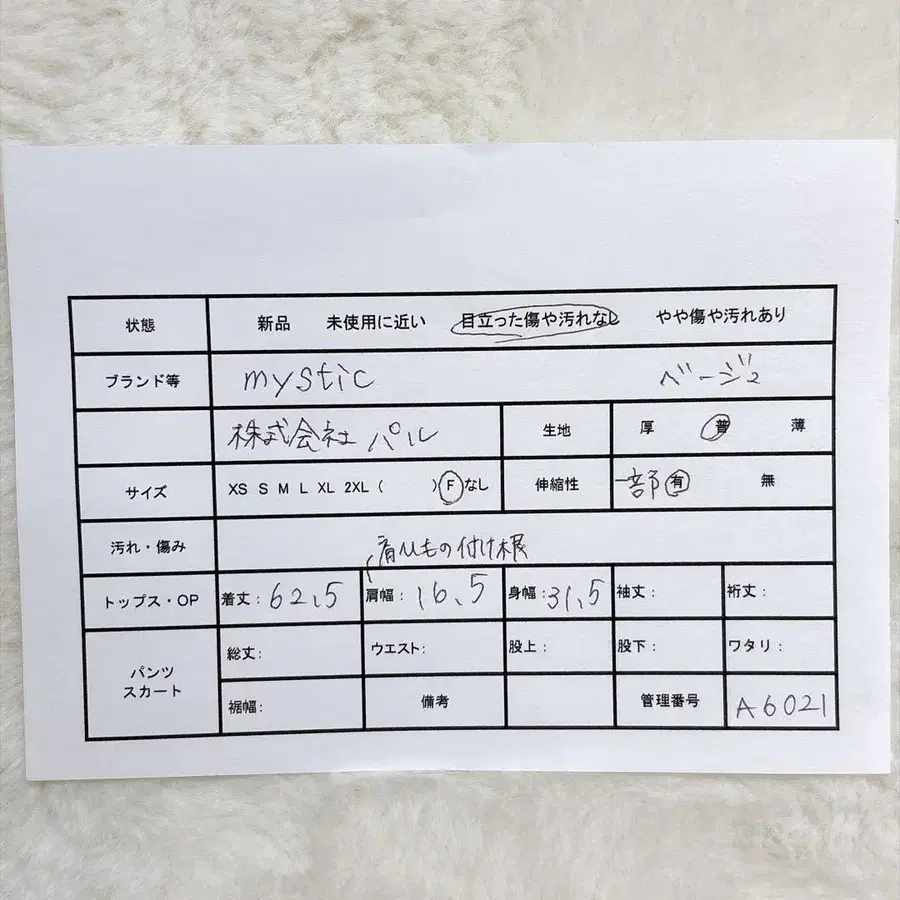 状態 新品 未使用に近い 目立った傷や汚れなし やや傷や汚れあり
ブランド等 mystic ベージュ
株式会社パル 生地 厚 普 薄
サイズ XS S M L XL 2XL ( ) F なし 伸縮性 一部 有 無
汚れ・傷み
肩ひもの付け根
トップス・OP 着丈: 62.5 肩幅: 16.5 身幅: 31.5 袖丈: 裄丈:
パンツ スカート 総丈: ウエスト: 股上: 股下: ワタリ:
裾幅: 備考 管理番号 A6021